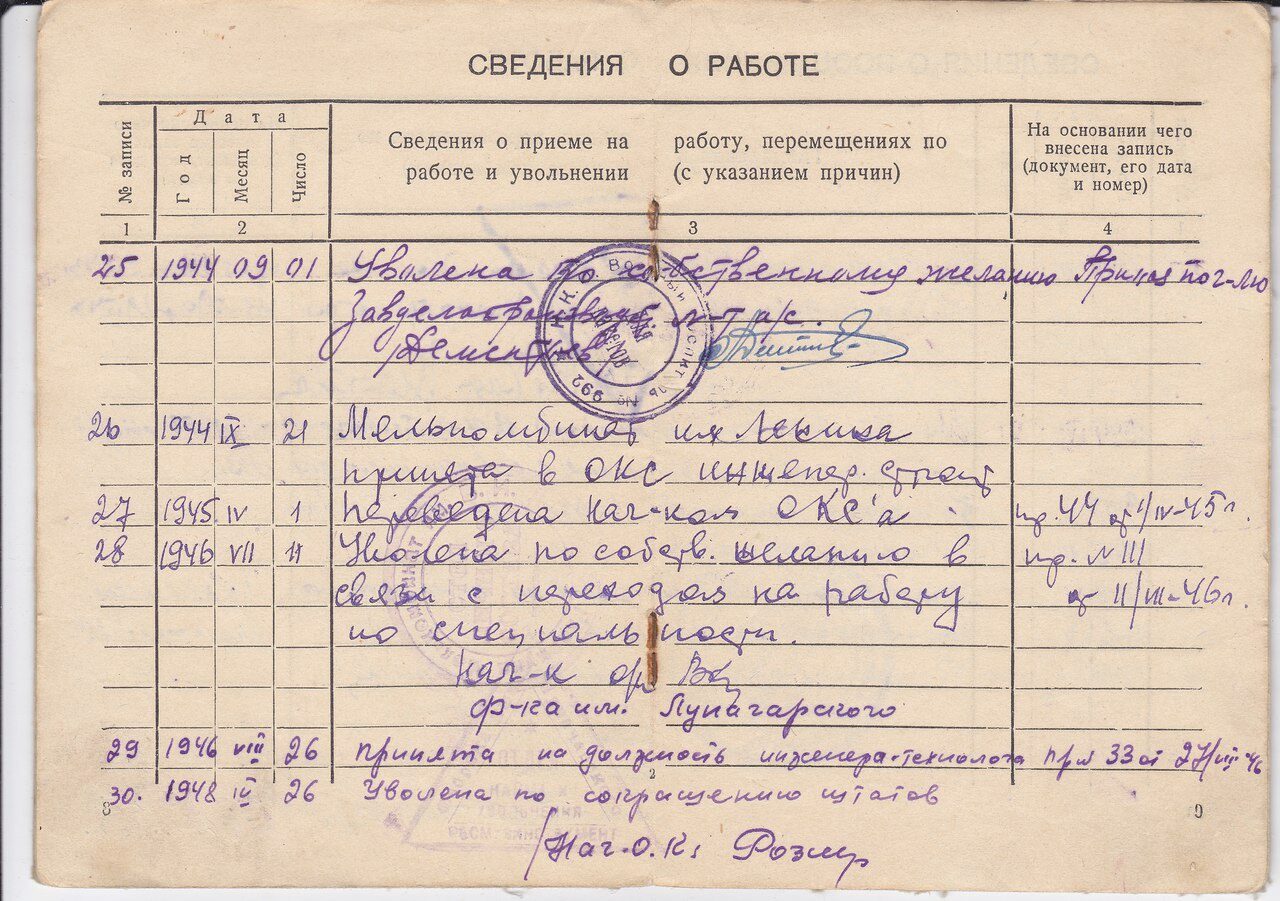 СВЕДЕНИЯ О РАБОТЕ
№ записи
Дата
Год
Месяц
Число
Сведения о приеме на работу, перемещениях по
работе и увольнении (с указанием причин)
На основании чего
внесена запись
(документ, его дата
и номер)
1 2 3 4
25 1944 09 01 Уволена по собственному желанию Приказ по г-лю
Завделопроизвод
26 1944 IX 21 Мелькомбинат им Ленина
принята в ОКС инженер. строит
27 1945 IV 1 Переведена нач-ком ОКС'а пр. 44 от 1/IV-45 г.
28 1946 VII 11 Уволена по собств. желанию в пр. №
связи с переходом на работу от
по специальности.
Нач-к
ф-ка им. Луначарского
29 1946 VIII 26 принята на должность инженера-технолога 33 от 27/VIII-46
30. 1948 26 Уволена по сокращению штатов
2
9
Нач. О.К.
ВОЕННЫЙ ГОСПИТАЛЬ № 992